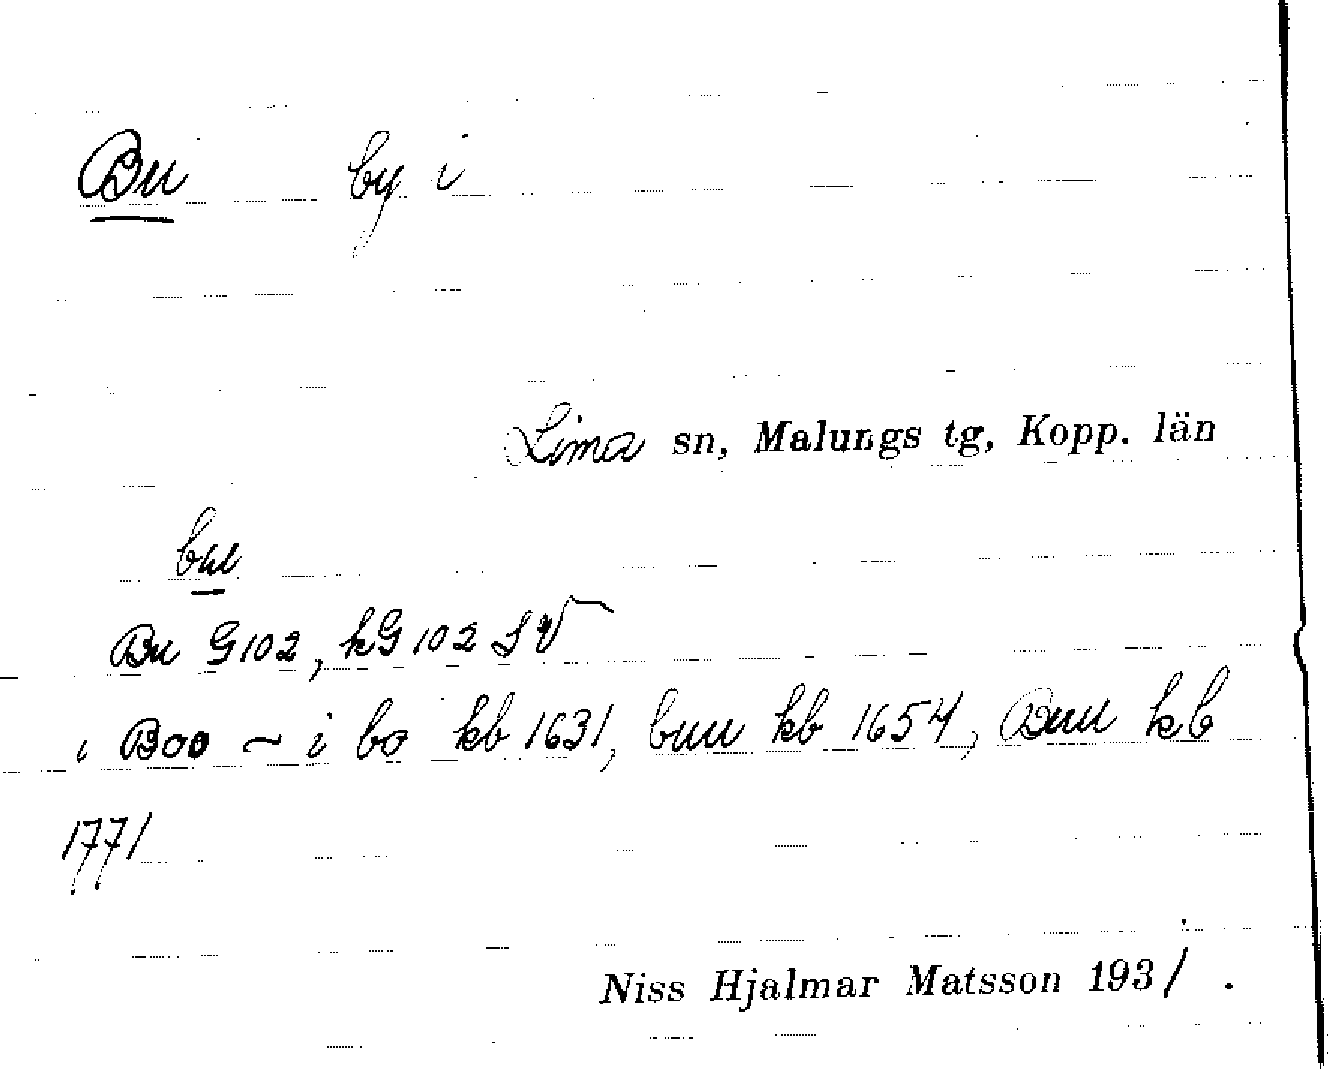 Bu by i
Lima sn, Malungs tg, Kopp. län
bu
Bu G102, kG 102 SV
i Boo ~ i bo kb 1631, buu kb 1654, Buu kb
1771
Niss Hjalmar Matsson 1931.